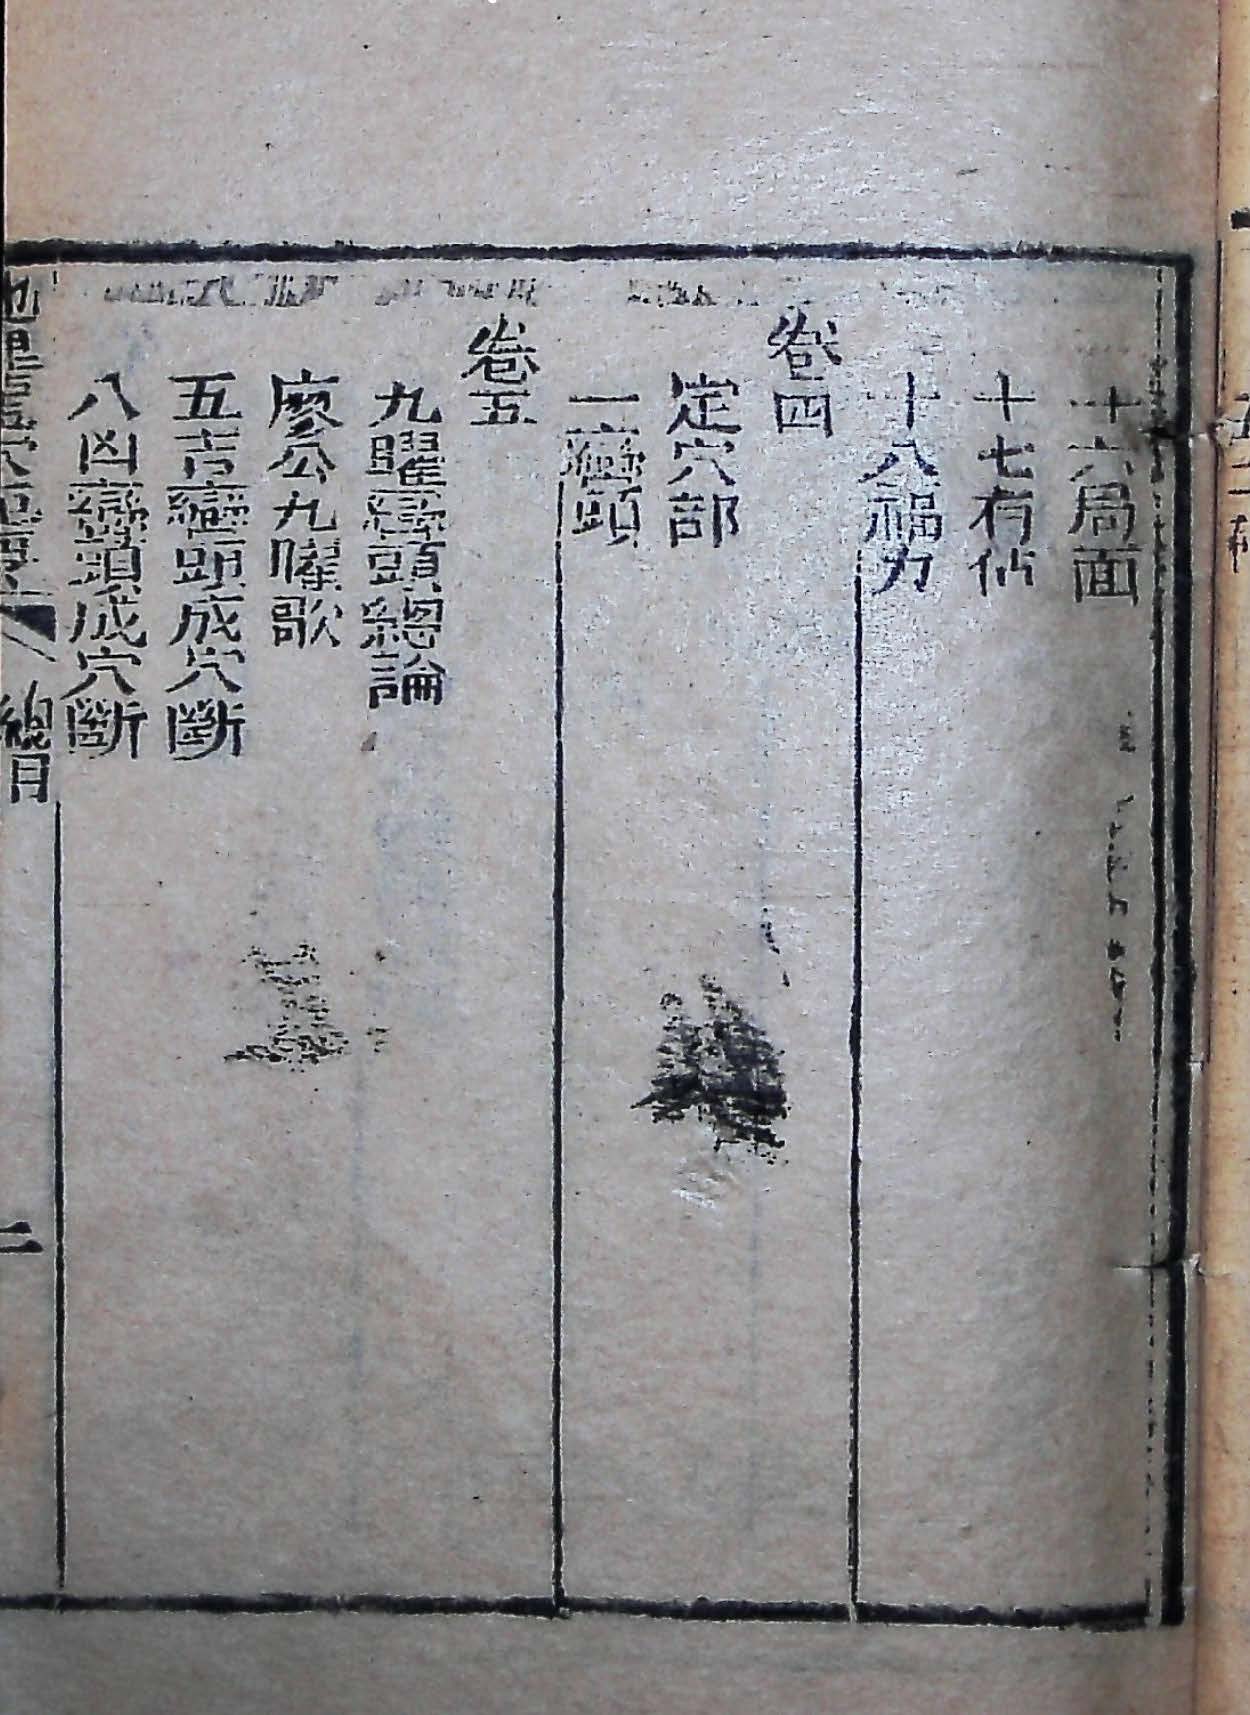 十六局面
十七有佔
十八福力
卷四
定穴部
一巒頭
卷五
九曜巒頭總論
廖公九曜歌
五吉巒頭成穴斷
八凶巒頭成穴斷
地理 穴 總目 二